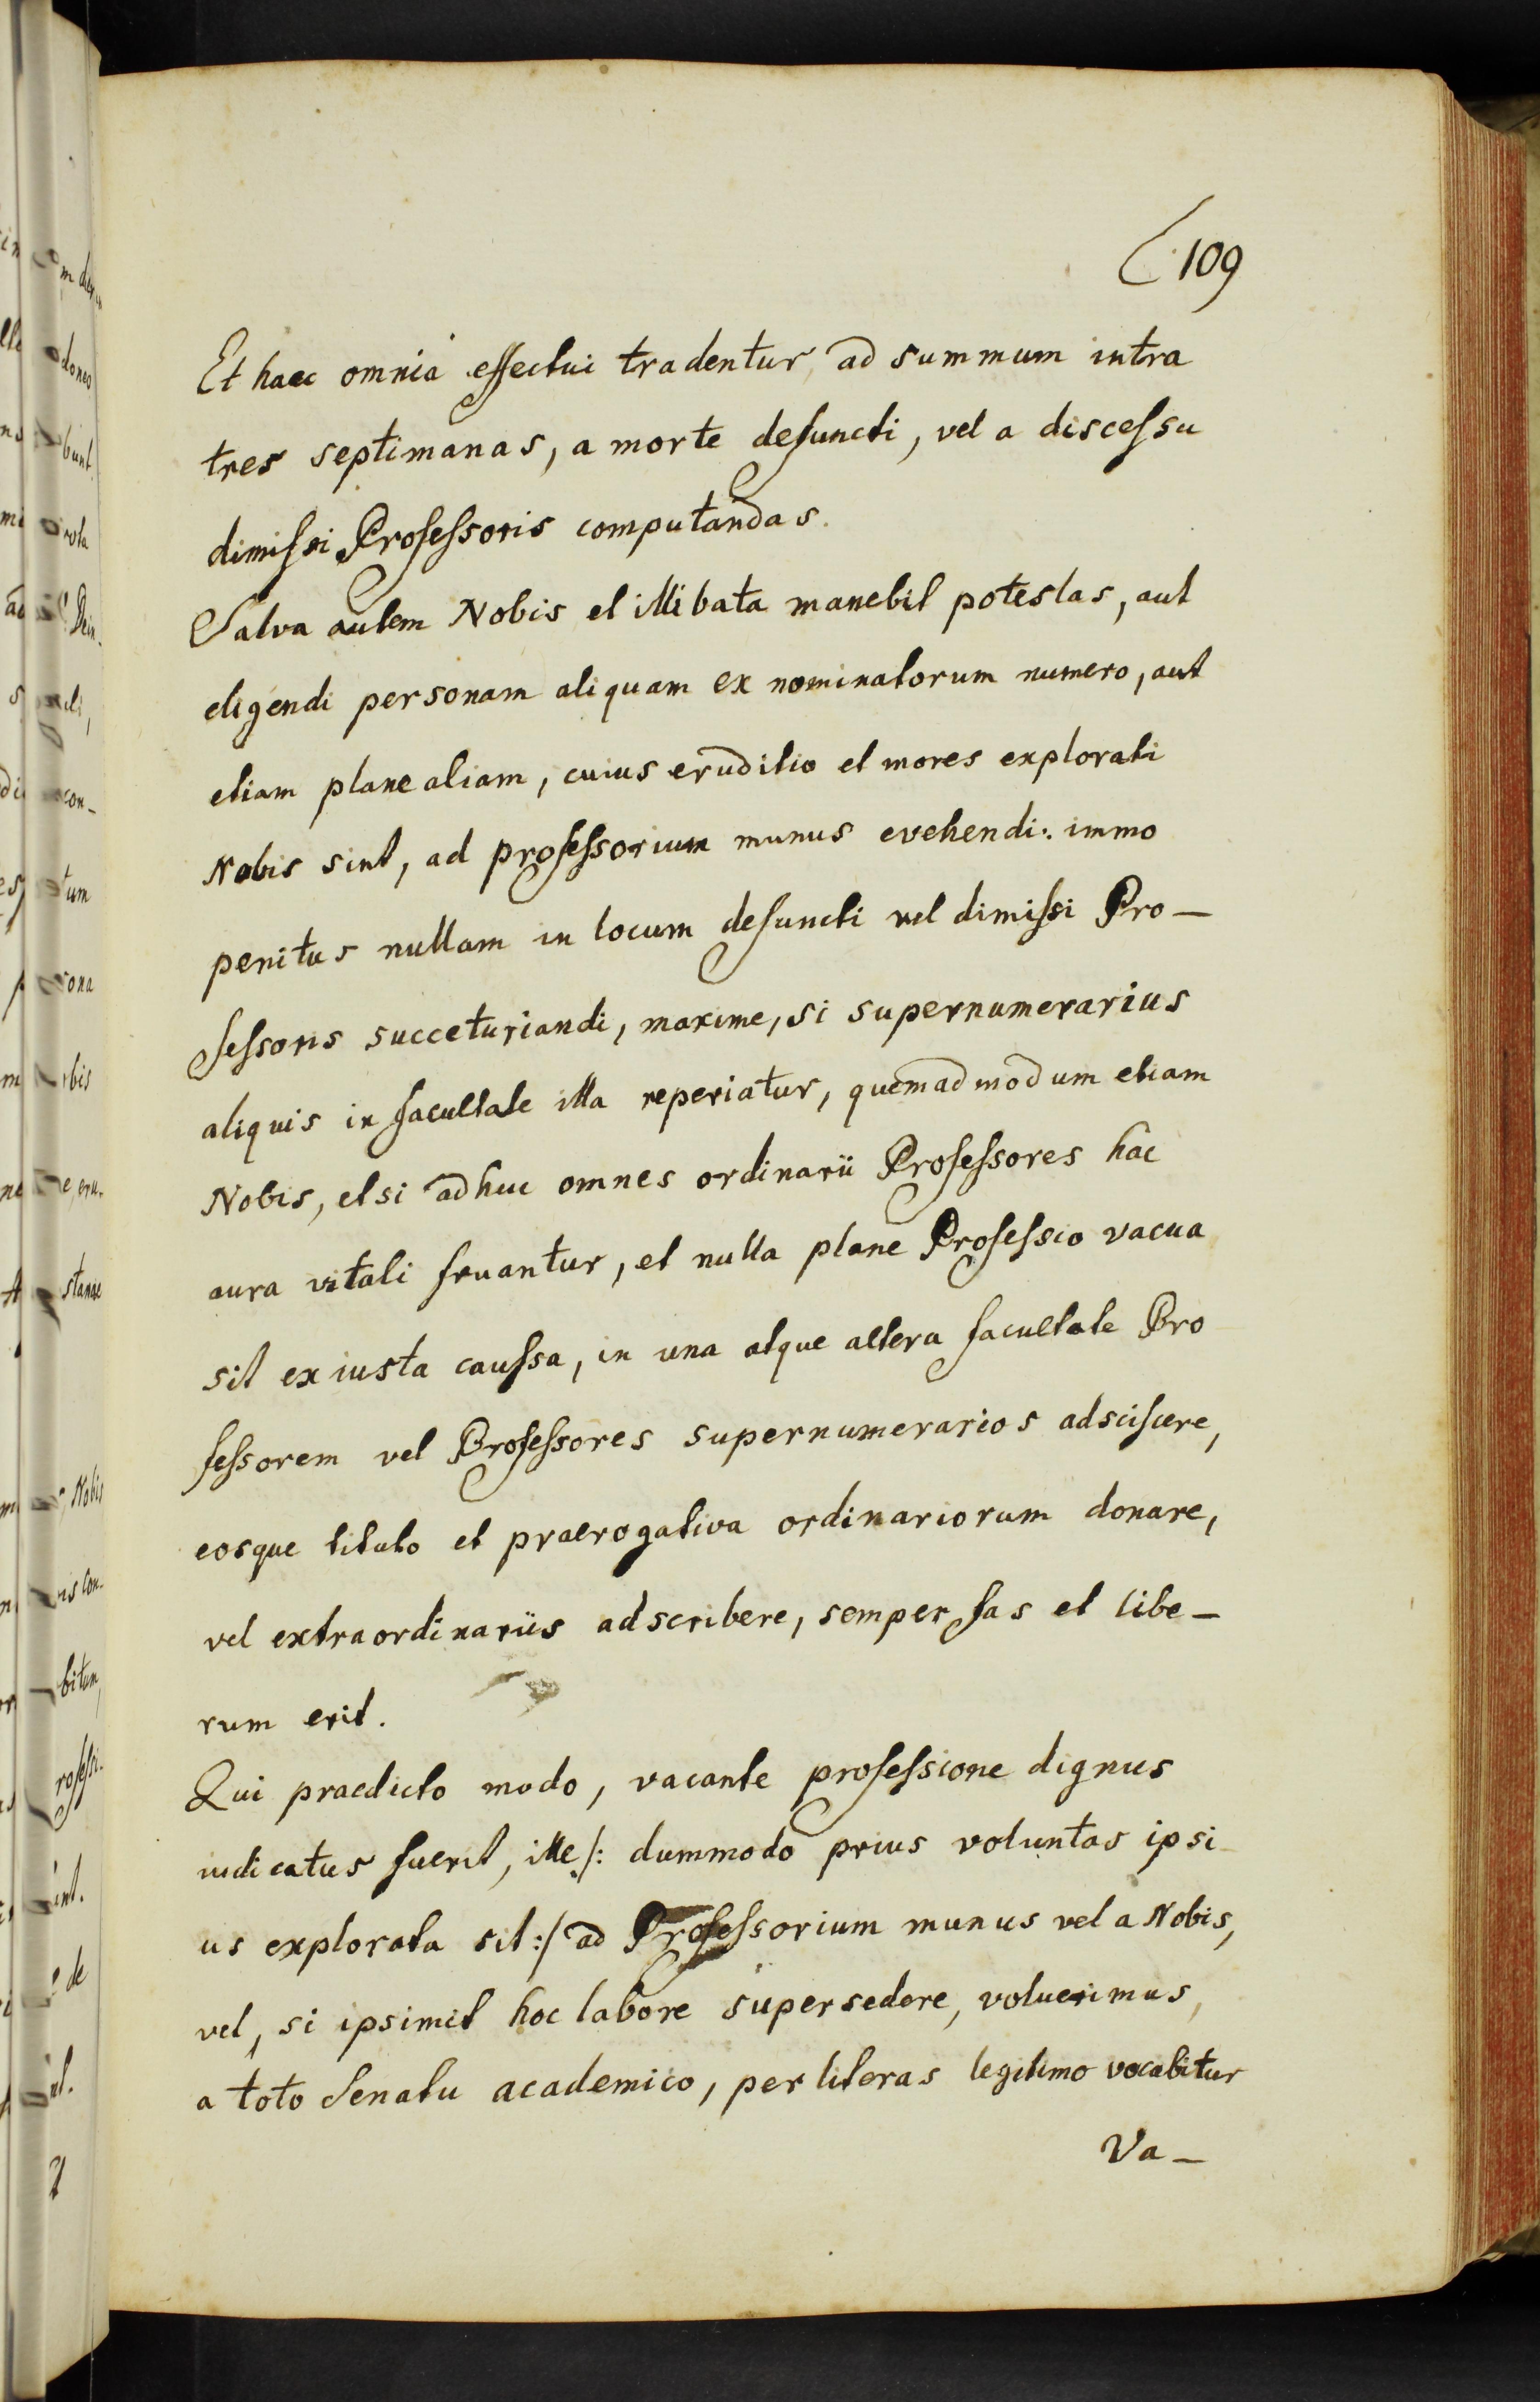 109
Et haec omnia effectui tradentur, ad summum intra
tres septimanas, a morte defuncti, vel a discessu
dimissi Professoris computandas.
Salva autem Nobis et illibata manebit potestas, aut
eligendi personam aliquam ex nominatorum numero, aut
etiam plane aliam, cuius eruditio et mores explorati
Nobis sint, ad professorium munus evehendi: immo
penitus nullam in locum defuncti vel dimissi Pro-
fessoris succeturiandi, maxime, si supernumerarius
aliquis in facultate illa reperiatur, quemadmodum etiam
Nobis, etsi adhuc omnes ordinarii Professores hac
aura vitali fruantur, et nulla plane Professio vacua
sit ex iusta caussa, in una atque altera facultate Pro
fessorem vel Professores supernumerarios adsciscere,
eosque titulo et praerogativa ordinariorum donare,
vel extraordinariis adscribere, semper fas et libe-
rum erit.
Qui praedicto modo, vacante professione dignus
iudicatus fuerit, ille /: dummodo prius voluntas ipsi-
us explorata sit :/ ad Professorium munus vel a Nobis,
vel, si ipsimet hoc labore supersedere, voluerimus,
a toto Senatu academico, per literas legitimo vocabitur
Va-